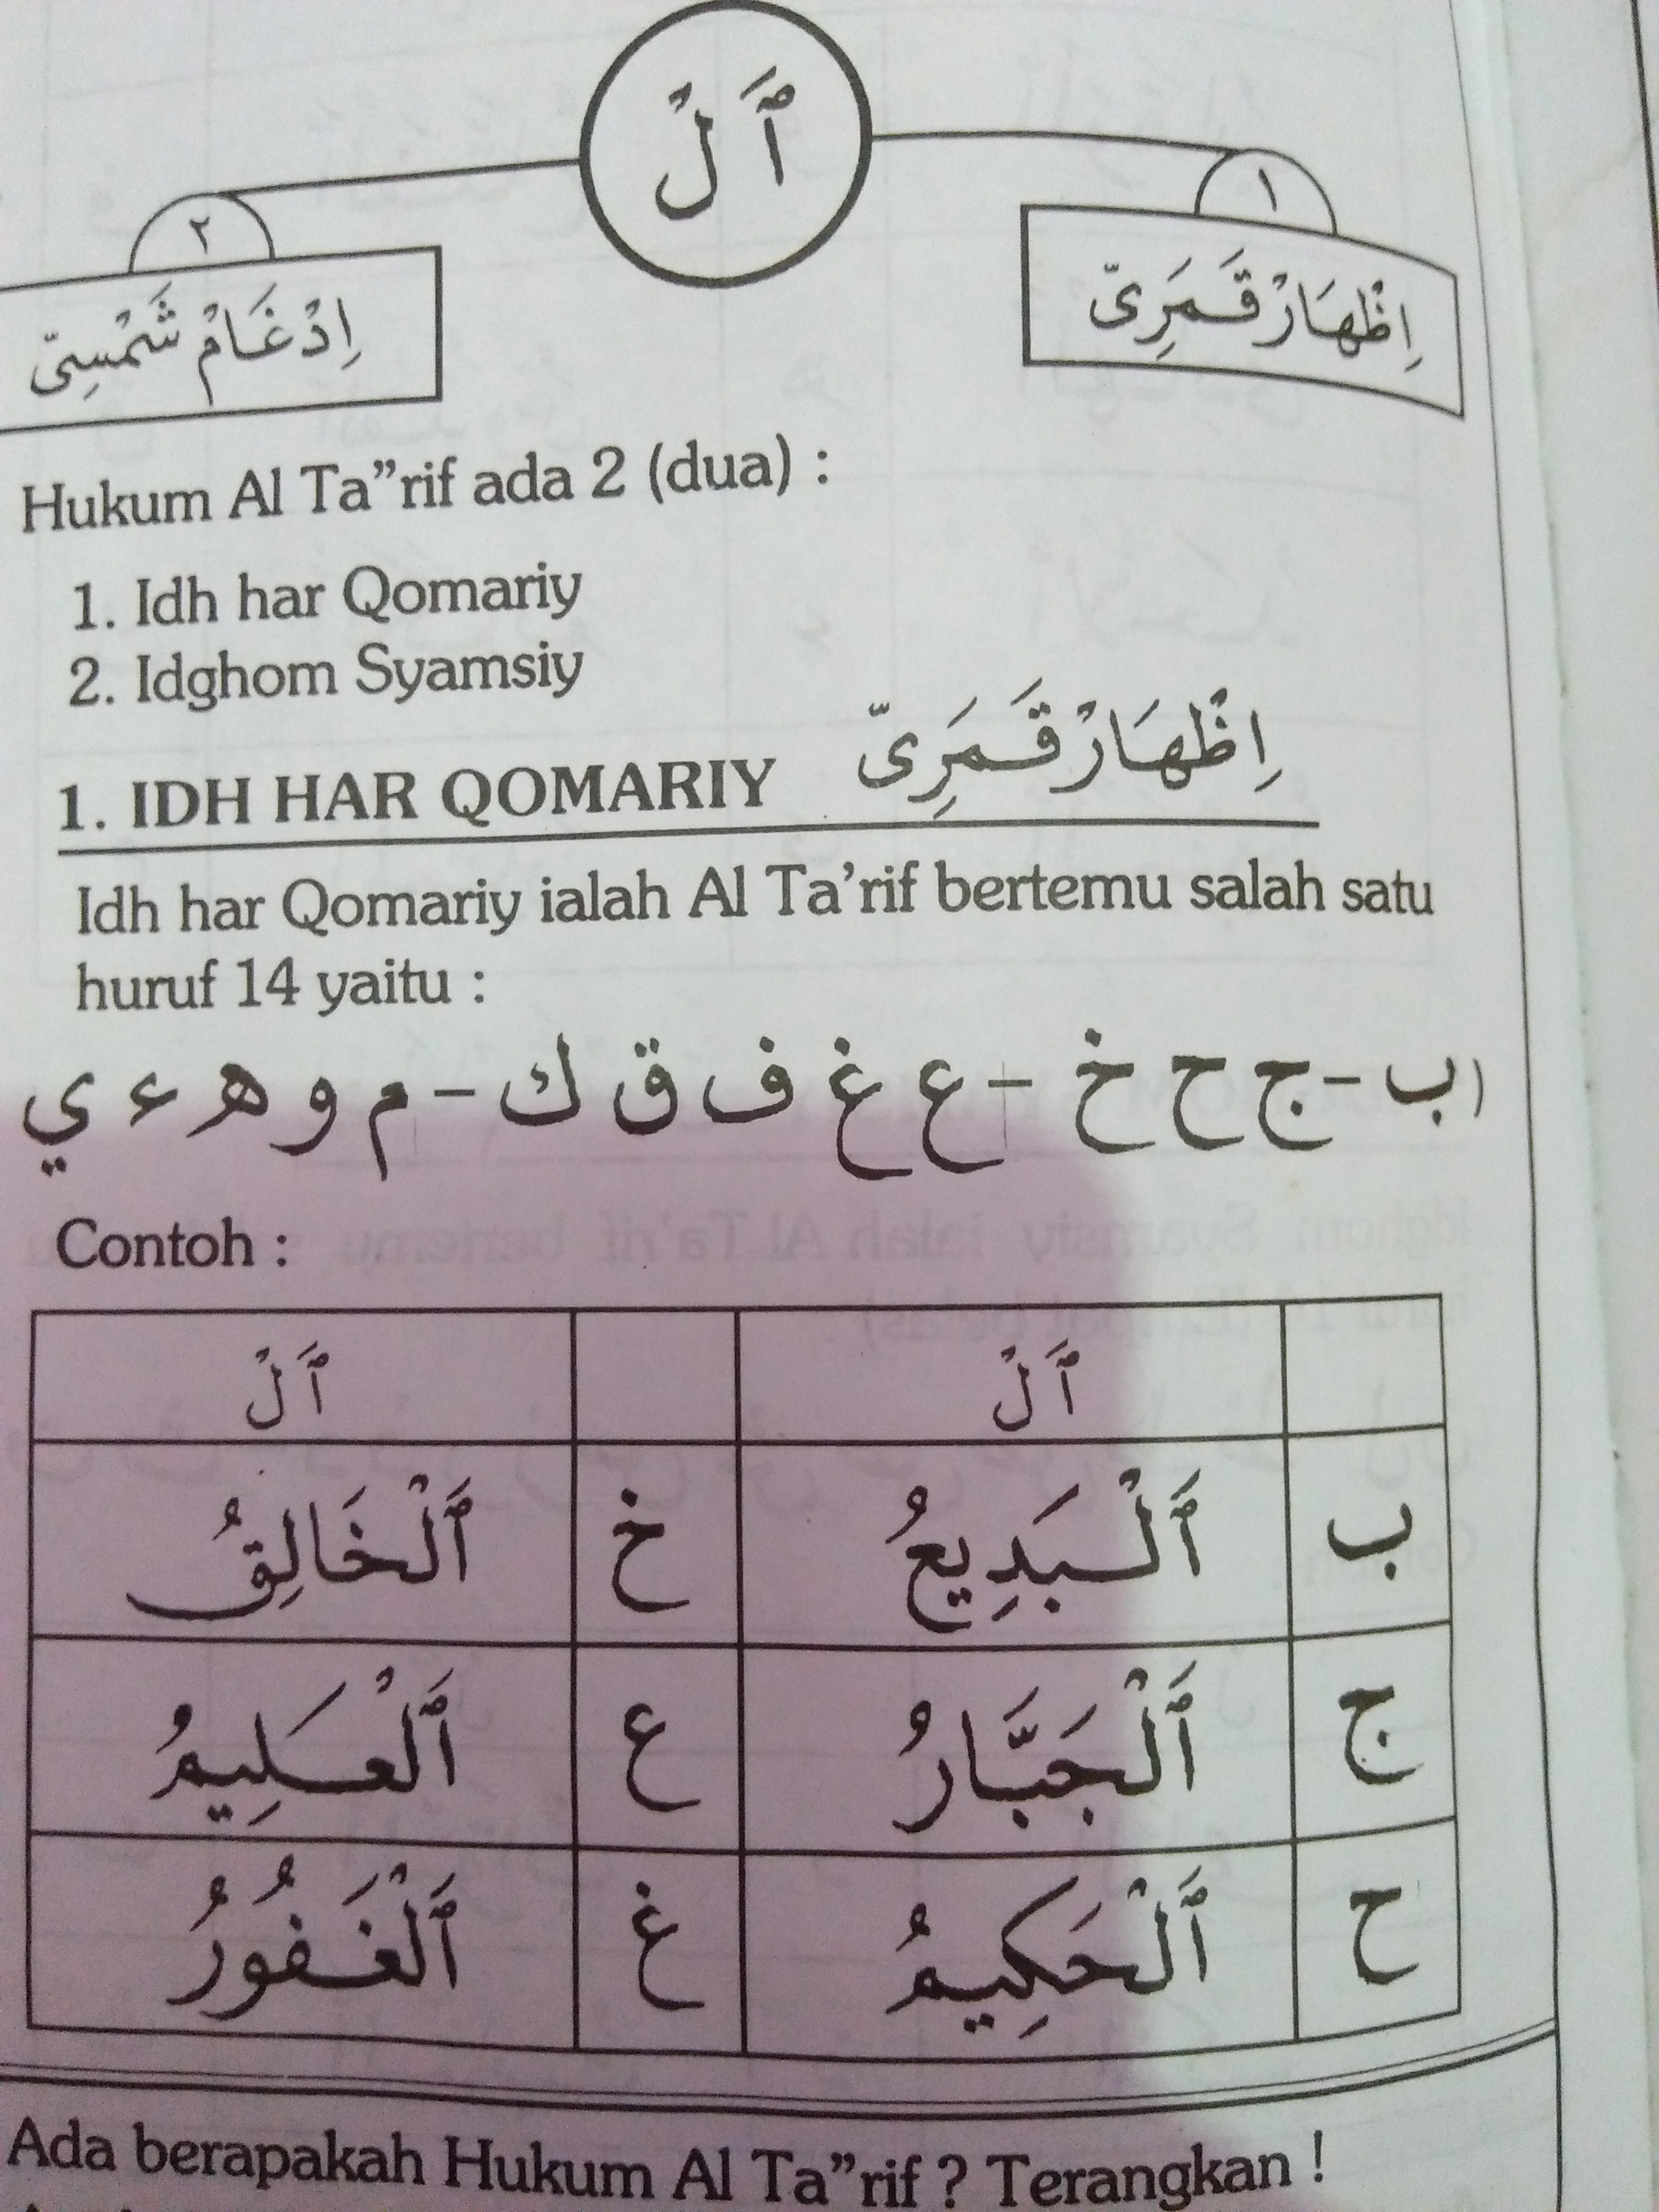 اَلْ
١
٢
اِظْهَارْ قَمَرِىّ
اِدْغَامْ شَمْسِىّ
Hukum Al Ta”rif ada 2 (dua) :
1. Idh har Qomariy
2. Idghom Syamsiy
1. IDH HAR QOMARIY اِظْهَارْ قَمَرِىّ
Idh har Qomariy ialah Al Ta’rif bertemu salah satu
huruf 14 yaitu :
ب - ج ح خ - ع غ ف ق ك - م و ه ء ي
Contoh :
اَلْ اَلْ
ب اَلْبَدِيعُ خ اَلْخَالِقُ
ج اَلْجَبَّارُ ع اَلْعَلِيمُ
ح اَلْحَكِيمُ غ اَلْغَفُورُ
Ada berapakah Hukum Al Ta”rif ? Terangkan !